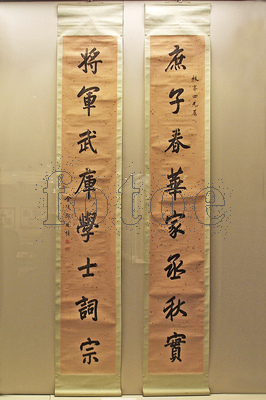 庶子春華家丞秋實
將軍武庫學士詞宗
fotoe